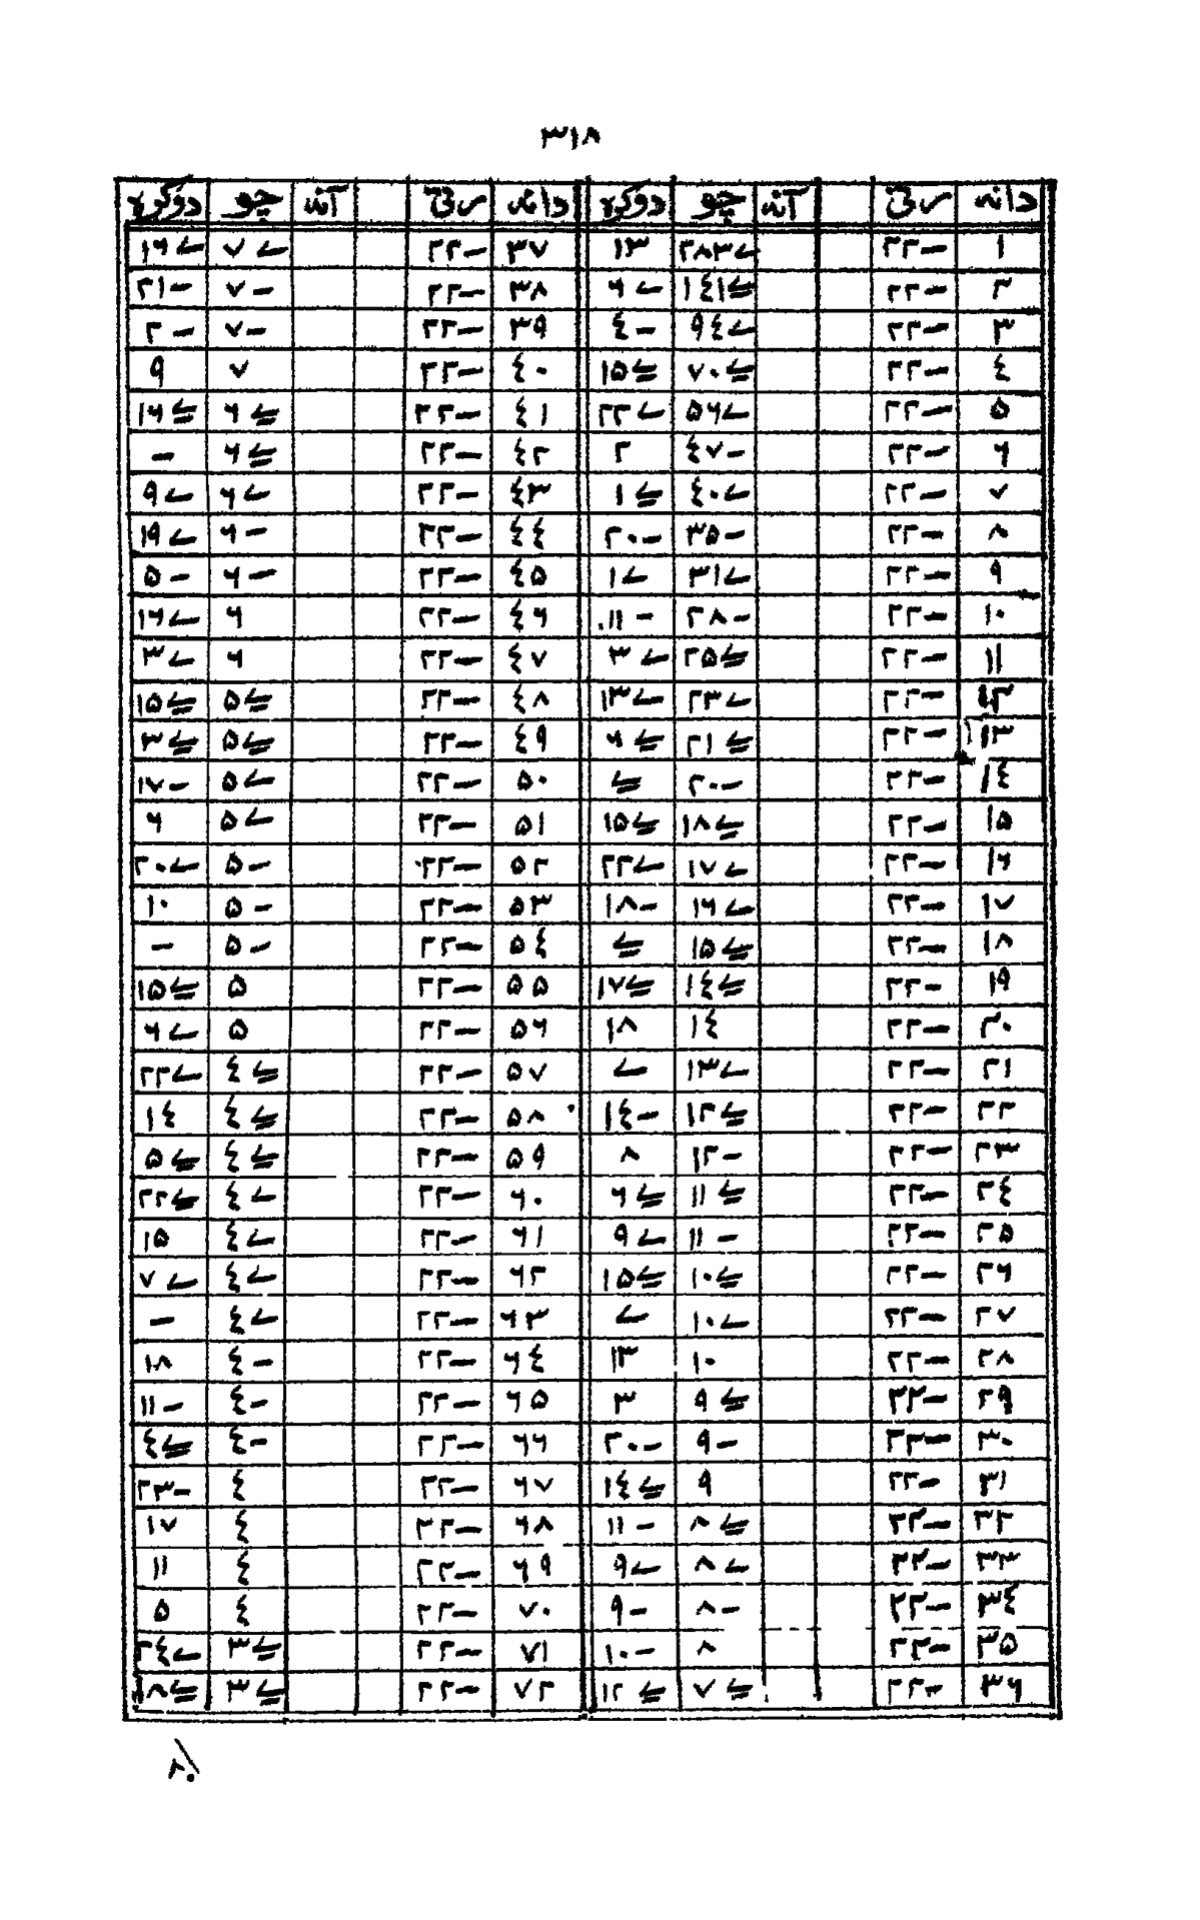 ٣١٨
دانه رتي آنه چو دوكره دانه رتي آنه چو دوكره
١ ٢٢— ٢٨٣ے ١٣ ٣٧ ٢٢— ٧ے ١٦ے
٢ ٢٢— ١٤١ے ٦ے ٣٨ ٢٢— ٧— ٢١—
٣ ٢٢— ٩٤ے ٤— ٣٩ ٢٢— ٧— ٢—
٤ ٢٢— ٧٠ے ١٥ے ٤٠ ٢٢— ٧ ٩
٥ ٢٢— ٥٦ے ٢٢ے ٤١ ٢٢— ٦ے ١٦ے
٦ ٢٢— ٤٧— ٢ ٤٢ ٢٢— ٦ے —
٧ ٢٢— ٤٠ے ١ے ٤٣ ٢٢— ٦ے ٩ے
٨ ٢٢— ٣٥— ٢٠— ٤٤ ٢٢— ٦— ١٩ے
٩ ٢٢— ٣١ے ١ے ٤٥ ٢٢— ٦— ٥—
١٠ ٢٢— ٢٨— ١١— ٤٦ ٢٢— ٦ ١٦ے
١١ ٢٢— ٢٥ے ٣ے ٤٧ ٢٢— ٦ ٣ے
١٢ ٢٢— ٢٣ے ١٣ے ٤٨ ٢٢— ٥ے ١٥ے
١٣ ٢٢— ٢١ے ٦ے ٤٩ ٢٢— ٥ے ٣ے
١٤ ٢٢— ٢٠— ے ٥٠ ٢٢— ٥ے ١٧—
١٥ ٢٢— ١٨ے ١٥ے ٥١ ٢٢— ٥ے ٦
١٦ ٢٢— ١٧ے ٢٢ے ٥٢ ٢٢— ٥— ٢٠ے
١٧ ٢٢— ١٦ے ١٨— ٥٣ ٢٢— ٥— ١٠
١٨ ٢٢— ١٥ے ے ٥٤ ٢٢— ٥— —
١٩ ٢٢— ١٤ے ١٧ے ٥٥ ٢٢— ٥ ١٥ے
٢٠ ٢٢— ١٤ ١٨ ٥٦ ٢٢— ٥ ٦ے
٢١ ٢٢— ١٣ے ے ٥٧ ٢٢— ٤ے ٢٢ے
٢٢ ٢٢— ١٢ے ١٤— ٥٨ ٢٢— ٤ے ١٤
٢٣ ٢٢— ١٢— ٨ ٥٩ ٢٢— ٤ے ٥ے
٢٤ ٢٢— ١١ے ٦ے ٦٠ ٢٢— ٤ے ٢٢ے
٢٥ ٢٢— ١١— ٩ے ٦١ ٢٢— ٤ے ١٥
٢٦ ٢٢— ١٠ے ١٥ے ٦٢ ٢٢— ٤ے ٧ے
٢٧ ٢٢— ١٠ے ے ٦٣ ٢٢— ٤ے —
٢٨ ٢٢— ١٠ ١٣ ٦٤ ٢٢— ٤— ١٨
٢٩ ٢٢— ٩ے ٣ ٦٥ ٢٢— ٤— ١١—
٣٠ ٢٢— ٩— ٢٠— ٦٦ ٢٢— ٤— ٤ے
٣١ ٢٢— ٩ ١٤ے ٦٧ ٢٢— ٤ ٢٣—
٣٢ ٢٢— ٨ے ١١— ٦٨ ٢٢— ٤ ١٧
٣٣ ٢٢— ٨ے ٩ے ٦٩ ٢٢— ٤ ١١
٣٤ ٢٢— ٨— ٩— ٧٠ ٢٢— ٤ ٥
٣٥ ٢٢— ٨ ١٠— ٧١ ٢٢— ٣ے ٢٤ے
٣٦ ٢٢— ٧ے ١٢ے ٧٢ ٢٢— ٣ے ١٨ے